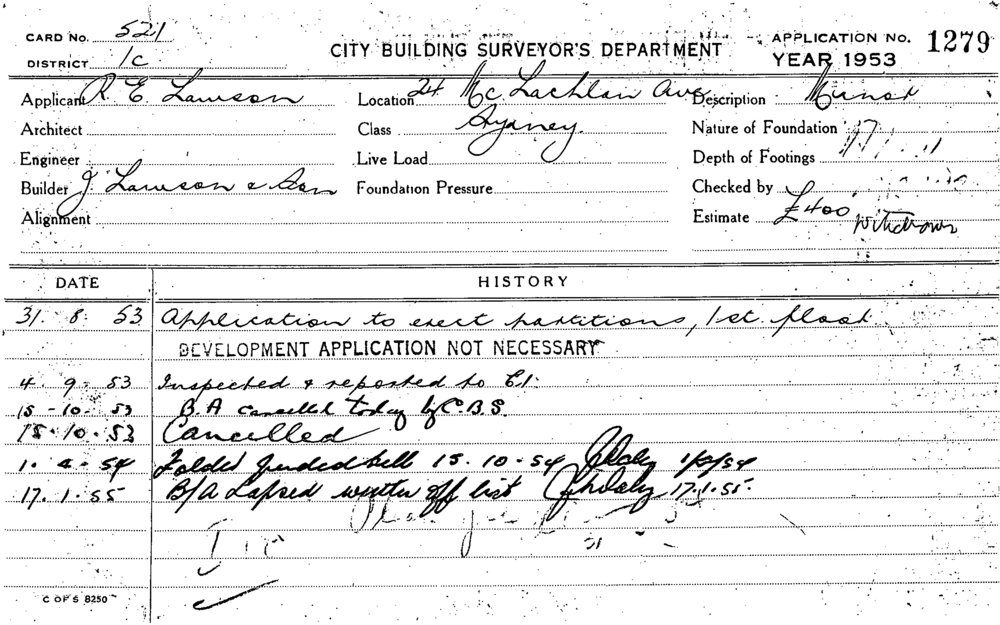 CARD No. 521
DISTRICT 1c
CITY BUILDING SURVEYOR'S DEPARTMENT
APPLICATION No. 1279
YEAR 1953
Applicant R. E. Lawson
Location 24 McLachlan Ave
Description Minor
Architect
Class Sydney.
Nature of Foundation
Engineer
Live Load
Depth of Footings
Builder J. Lawson & Son
Foundation Pressure
Checked by
Alignment
Estimate £400 Withdrawn
DATE HISTORY
31. 8. 53 Application to erect partitions, 1st. floor
DEVELOPMENT APPLICATION NOT NECESSARY
4. 9. 53 Inspected & reported to
15-10-53 B.A cancelled today by C.B.S.
15.10.53 Cancelled
54 15.10.54
17.1.55 B/A Lapsed off list 17.1.55.
C OF S 8250